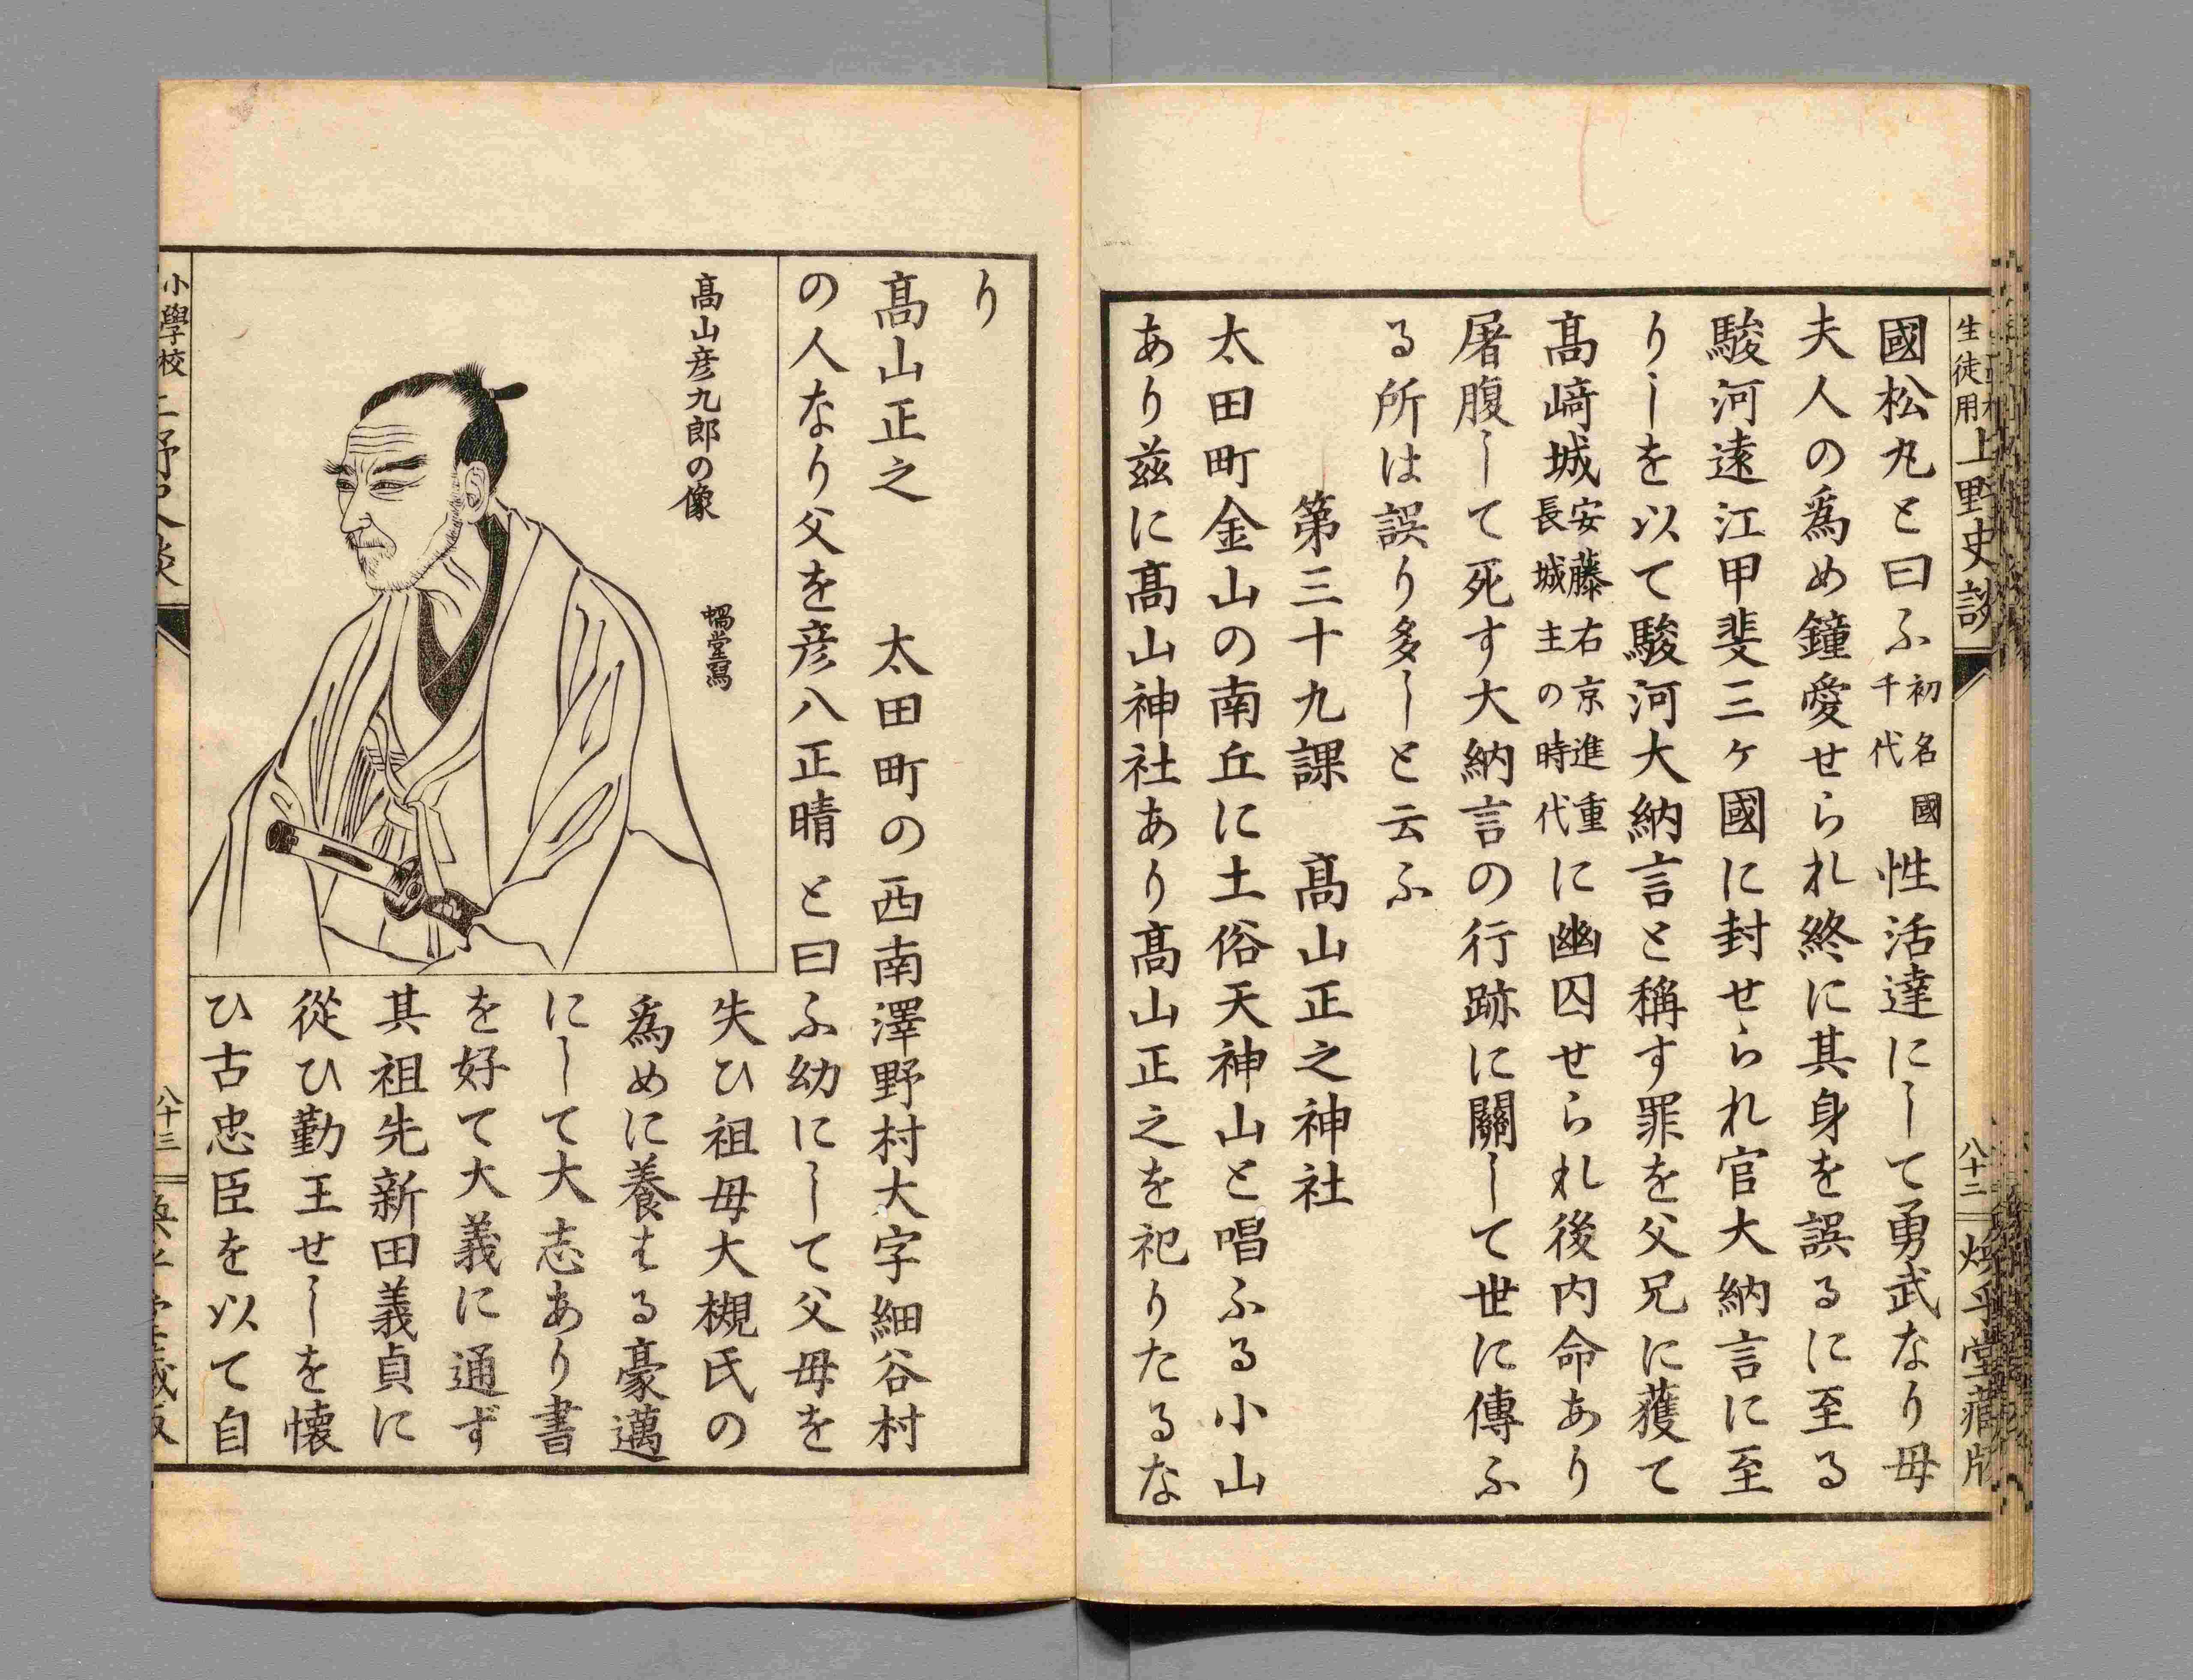 生徒用 上野史談
八十二
煥乎堂蔵版
國松丸と曰ふ初名國千代性活達にして勇武なり母
夫人の爲め鐘愛せられ終に其身を誤るに至る
駿河遠江甲斐三ヶ國に封せられ官大納言に至
りしを以て駿河大納言と稱す罪を父兄に獲て
髙﨑城安藤右京進重長城主の時代に幽囚せられ後内命あり
屠腹して死す大納言の行跡に關して世に傳ふ
る所は誤り多しと云ふ
第三十九課 髙山正之神社
太田町金山の南丘に土俗天神山と唱ふる小山
あり兹に髙山神社あり髙山正之を祀りたるな
り
髙山正之 太田町の西南澤野村大字細谷村
の人なり父を彦八正晴と曰ふ幼にして父母を
髙山彦九郎の像
蝸堂寫
失ひ祖母大槻氏の
爲めに養はる豪邁
にして大志あり書
を好て大義に通ず
其祖先新田義貞に
從ひ勤王せしを懐
ひ古忠臣を以て自
小學校
八十三